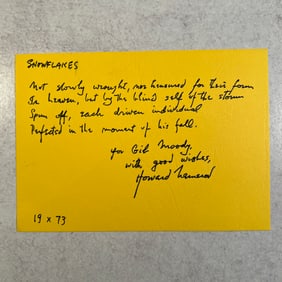 SNOWFLAKES
Not slowly wrought, nor treasured for their form
In heaven, but by the blind self of the storm
Spun off, each driven individual
Perfected in the moment of his fall.
for Gil Moody,
with good wishes,
Howard Nemerov
19 x 73